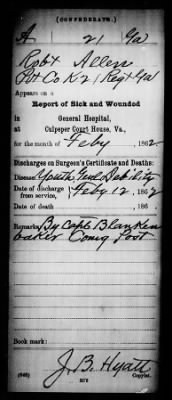 (CONFEDERATE.)
A 21 Ga
Robt Allen
Pvt Co K 21 Regt Ga
Appears on a
Report of Sick and Wounded
in General Hospital,
at Culpeper Court House, Va.,
for the month of Feby, 1862.
Discharges on Surgeon's Certificate and Deaths:
Disease Youth, Genl Debility
Date of discharge from service, Feby 12, 1862
Date of death , 186
Remarks: By Capt Blanken
baker Comg Post
Book mark:
J. B. Hyatt
Copyist.